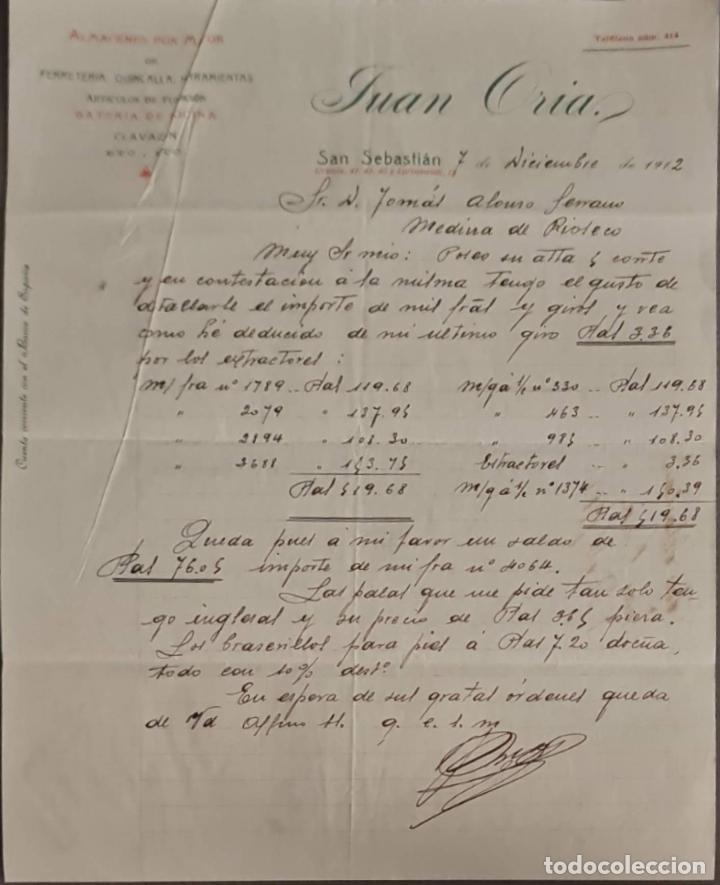 ALMACENES POR MAYOR
DE
FERRETERIA, QUINCALLA, HERRAMIENTAS
ARTICULOS DE FUNDICIÓN
BATERIA DE COCINA
CLAVAZÓN
ETC., ETC.
Teléfono núm. 414
Juan Oria.
San Sebastián 7 de Diciembre de 1912
Sr. D. Tomás Alonso Serrano
Medina de Rioseco
Muy Sr mio: Poseo su atta 5 corrte
y en contestación á la misma tengo el gusto de
detallarle el importe de mis fras y giros y vea
como hé deducido de mi ultimo giro Ptas 3.36
por los extractores:
m/ fra nº 1789 .. Ptas 119.68 m/g á s/c nº 330 .. Ptas 119.68
" 2079 " 137.95 " 463 .. " 137.95
" 2894 " 108.30 " 985 .. " 108.30
" 3688 " 153.75 Extractores .. 3.36
Ptas 519.68 m/g á s/c nº 1374 .. " 150.39
Ptas 519.68
Queda pues á mi favor un saldo de
Ptas 76.05 importe de mi fra nº 4064.
Las palas que me pide tan solo ten-
go inglesas y su precio de Ptas 3.65 pieza.
Los braserillos para pies á Ptas 7.20 docna,
todo con 10% desto.
En espera de sus gratas órdenes queda
de Vd Affmo s.s. q. e. s. m
Cuenta corriente con el Banco de España
todocoleccion.net